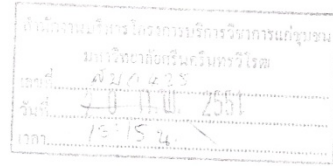 สำนักงานบริหารโครงการบริการวิชาการแก่ชุมชน
มหาวิทยาลัยศรีนครินทรวิโรฒ
เลขที่
วันที่ 20 ก.พ. 2551
เวลา 13:15 น.